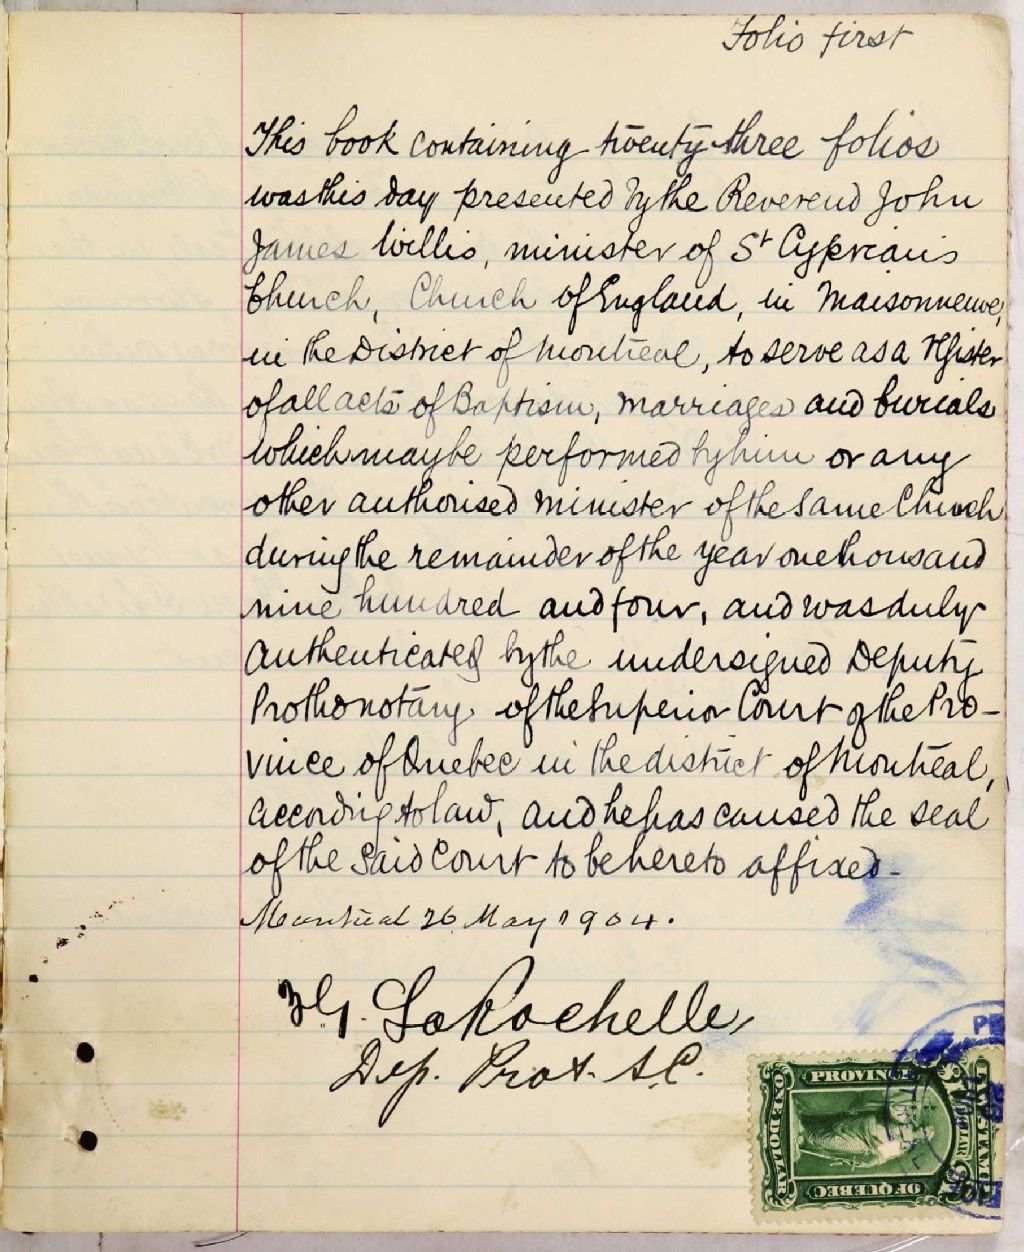 Folio first
This book containing twenty-three folios
was this day presented by the Reverend John
James Willis, minister of St Cyprian's
Church, Church of England, in Maisonneuve,
in the District of Montreal, to serve as a register
of all acts of Baptism, marriages and burials
which may be performed by him or any
other authorised minister of the same Church
during the remainder of the year one thousand
nine hundred and four, and was duly
authenticated by the undersigned Deputy
Prothonotary of the Superior Court of the Pro-
vince of Quebec in the district of Montreal,
according to law, and he has caused the seal
of the said Court to be hereto affixed-
Montreal 26 May 1904.
LaRochelle,
Dep. Prot. S.C.
PROVINCE
ONE DOLLAR
LAW STAMP
OF QUEBEC